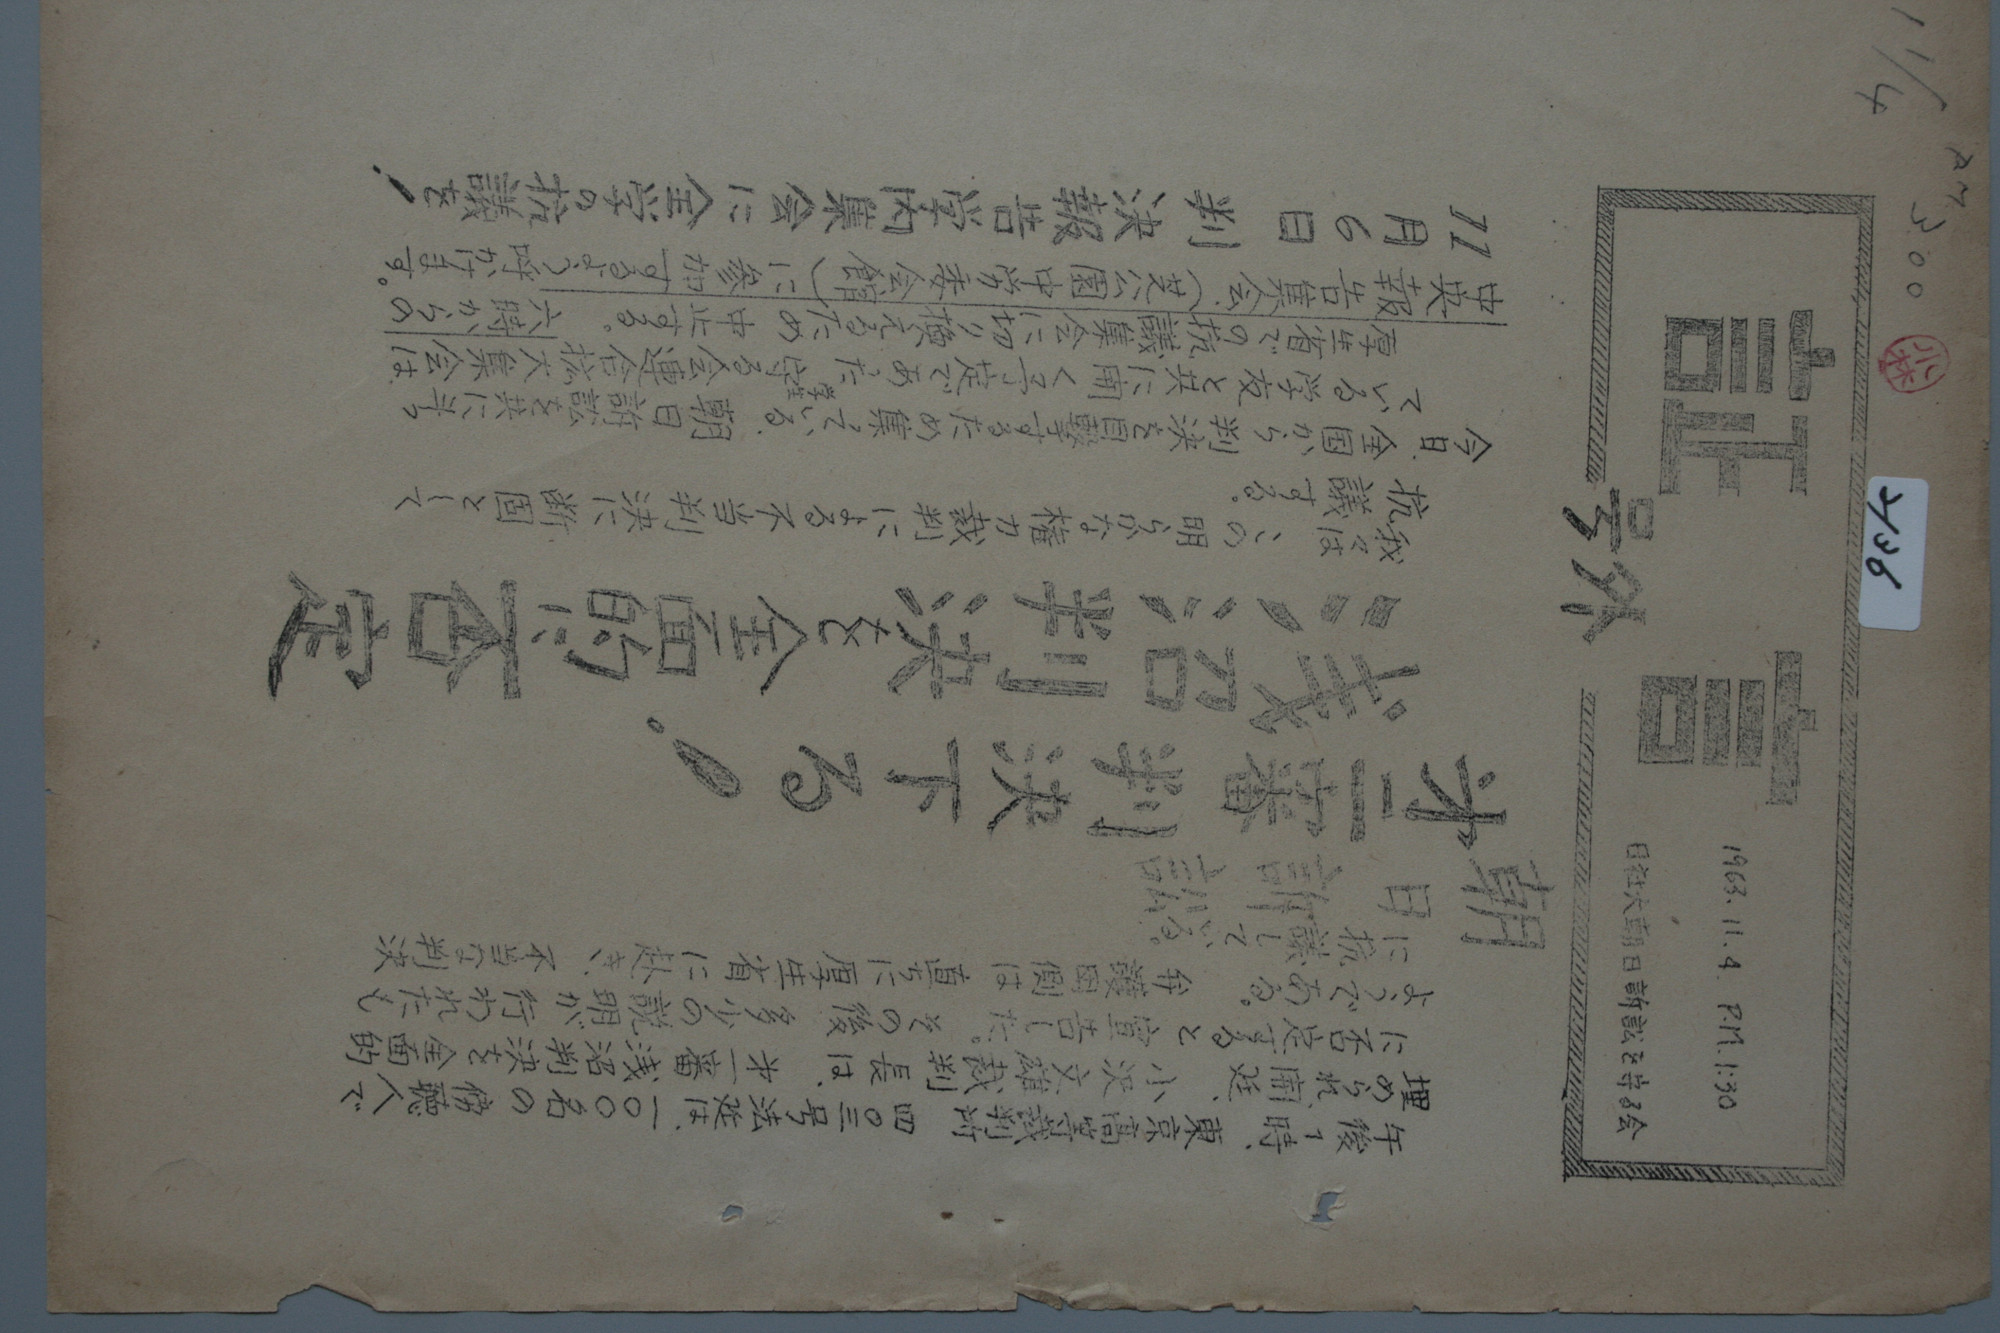 11/4 PM 300
小林
Y36
証言
号外
1963.11.4. P.M.1:30
日社大朝日訴訟を守る会
午後1時、東京高等裁判所 四〇三号法廷は、一〇〇名の傍聴人で
埋められ開廷、小沢文雄裁判長は、才一審浅沼判決を全面的
に否定すると宣言した。その後 多少の説明が行われたも
ようである。弁護団側は直ちに厚生省に赴き、不当な判決
に抗議している。
朝日訴訟
才二審判決下る!
浅沼判決を全面的に否定
我々はこの明らかな権力裁判による不当判決に断固として
抗議する。
今日、全国から判決を目撃するため集っている、朝日訴訟を共に斗っ
ている学友と共に開く予定であった 学生守る会連合 大集会は
厚生省での抗議集会に切り換えるため中止する。六時からの
中央報告集会、(芝公園中労委会館)に参加するよう呼かけます。
11月6日 判決報告学内集会に全学の抗議を!